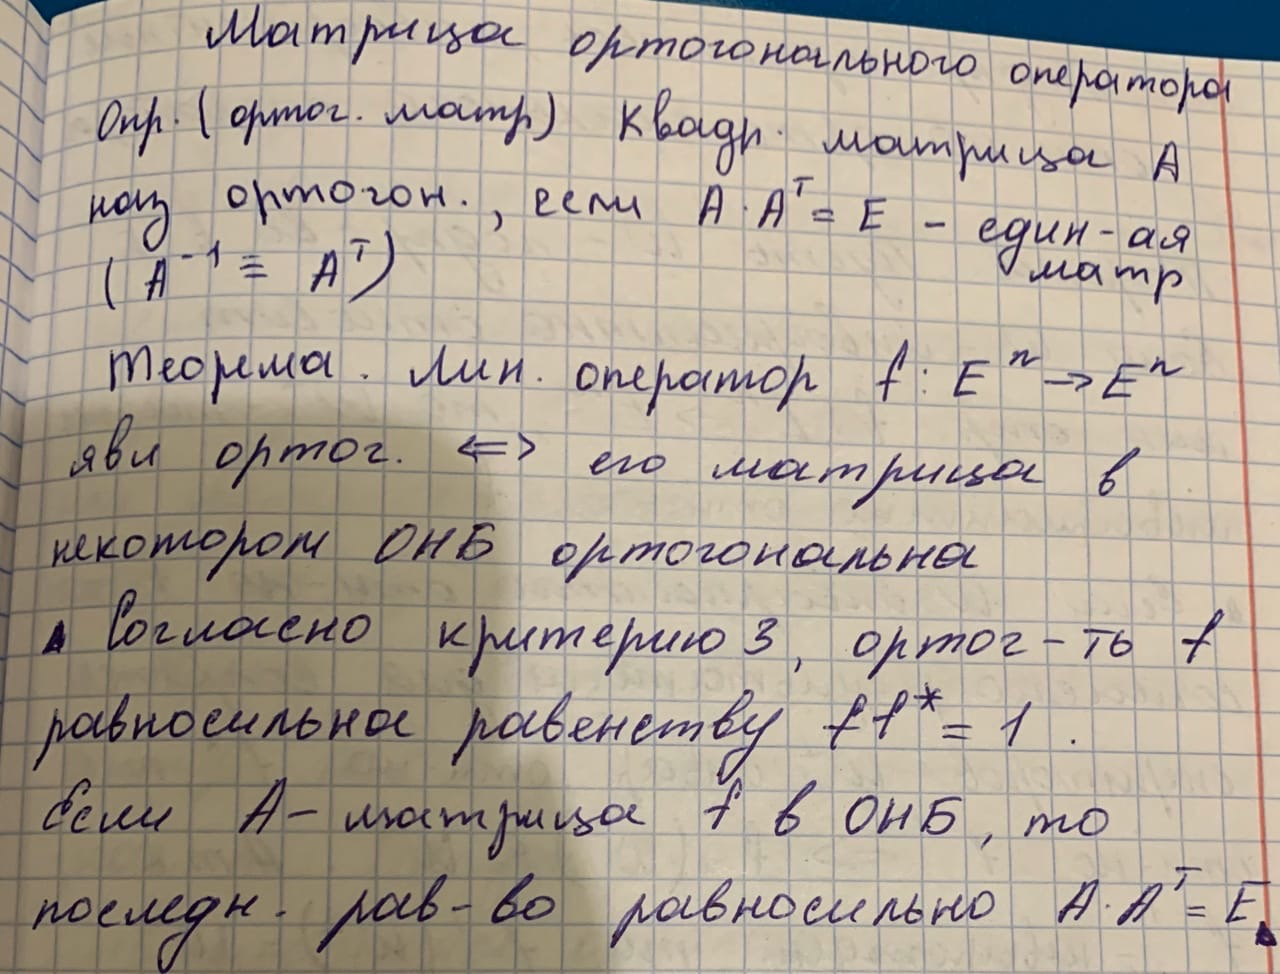 Матрица ортогонального оператора
Опр. (ортог. матр) Квадр. матрица A
наз ортогон., если A·Aᵀ = E – един-ая
матр
(A⁻¹ = Aᵀ)
Теорема. Лин. оператор f: Eⁿ → Eⁿ
явл ортог. <=> его матрица в
некотором ОНБ ортогональна
▲ Согласно критерию 3, ортог-ть f
равносильна равенству ff* = 1.
Если A – матрица f в ОНБ, то
последн. рав-во равносильно A·Aᵀ = E ▲